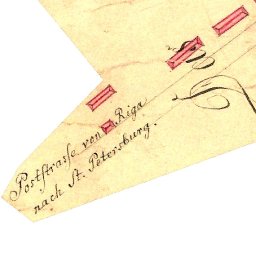 Poststrasse von Riga
nach St. Petersburg.